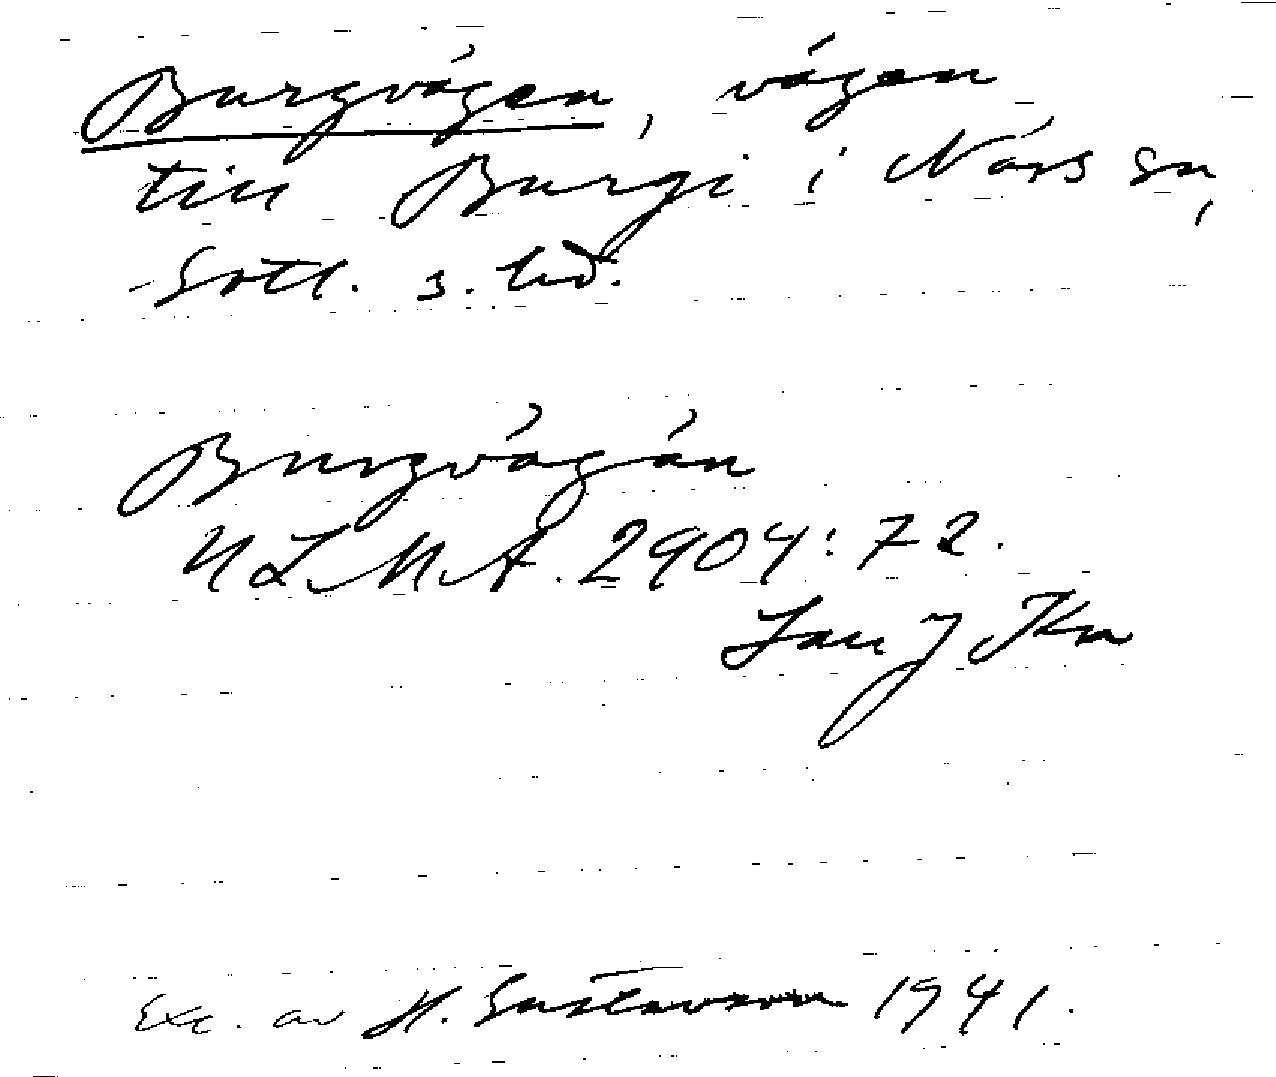 Burgvägen, vägen
till Burgi i Närs sn,
Gotl. s. hd.
Burgvägän
ULMA. 2904:72.
Exc. av H. Gustavson 1941.